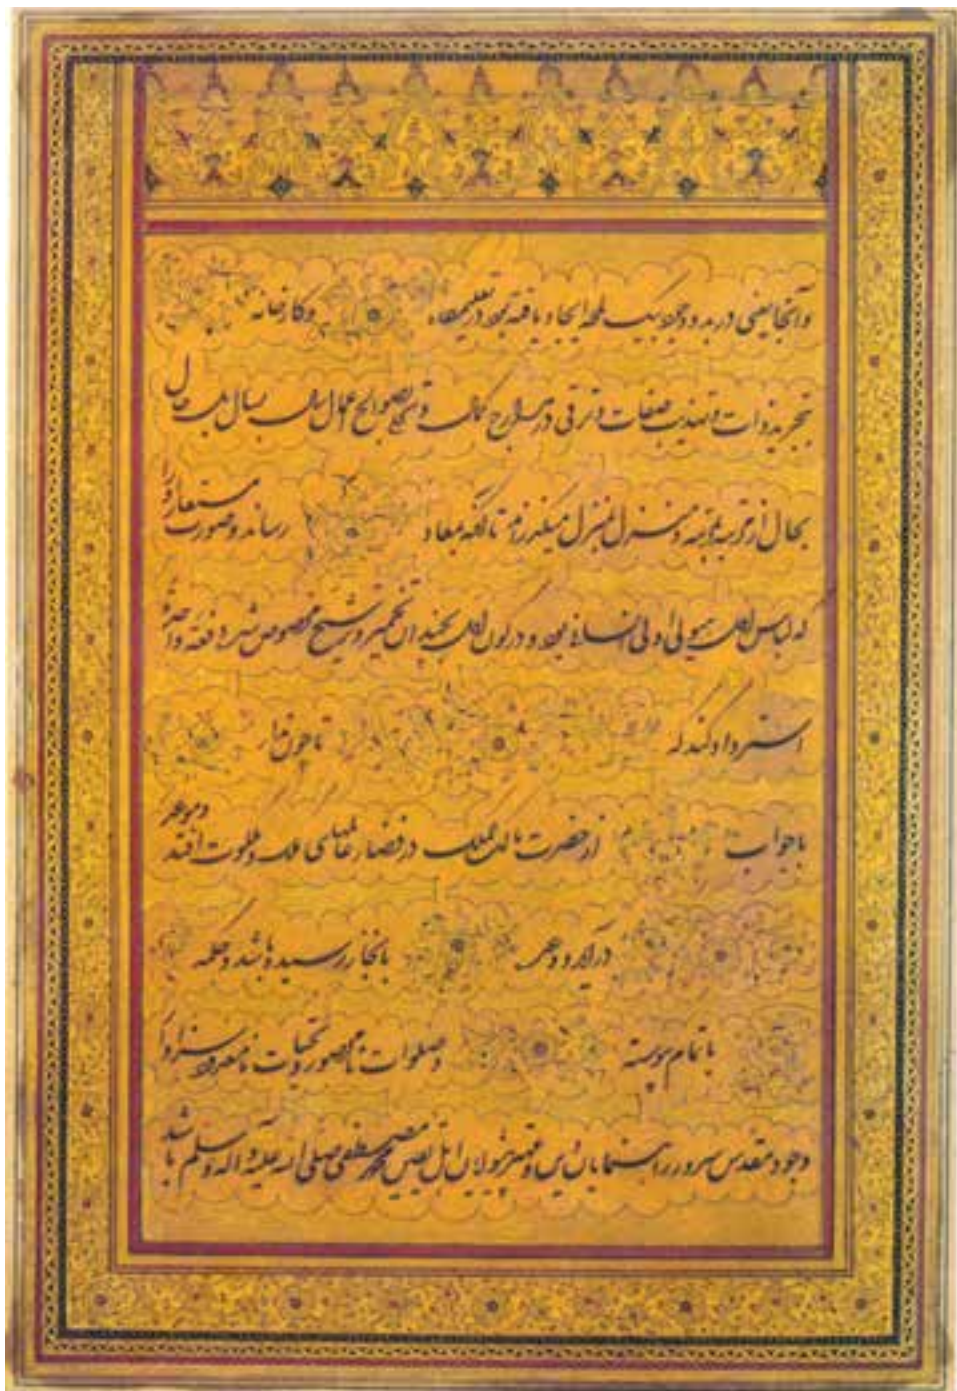 وآنجا یعنی در بدو وجود بیک لمحه ایجاد یافته بود در تعلیمگاه وکارخانه
تجرید ذات وتهذیب صفات وترقی در مدارج کمال و بصوالح اعمال سال بسال بل حال
بحال از مرتبه بمرتبه ومنزل بمنزل میگذراند تا آنگه بمعاد رساند وصورت مستعار را
که لباس اول هیولی اولی انسانی بوده و در کون اول بچندان تخمیر وترشیح مخصوص شده دفعة واحدة
استرداد کند که تا چون ندا
با جواب از حضرت مالک الملک در فضاء عالمهای ملک وملکوت افتد وموعد
درآید و وعد بانجاز رسیده باشد وحکمه
باتمام پیوسته وصلوات نامحصور وتحیات نامعدود سزاوار
وجود مقدس سرور راهنمایان دین ومهتر پیشوایان اهل یقین محمد مصطفی صلی الله علیه وآله وسلم باشد